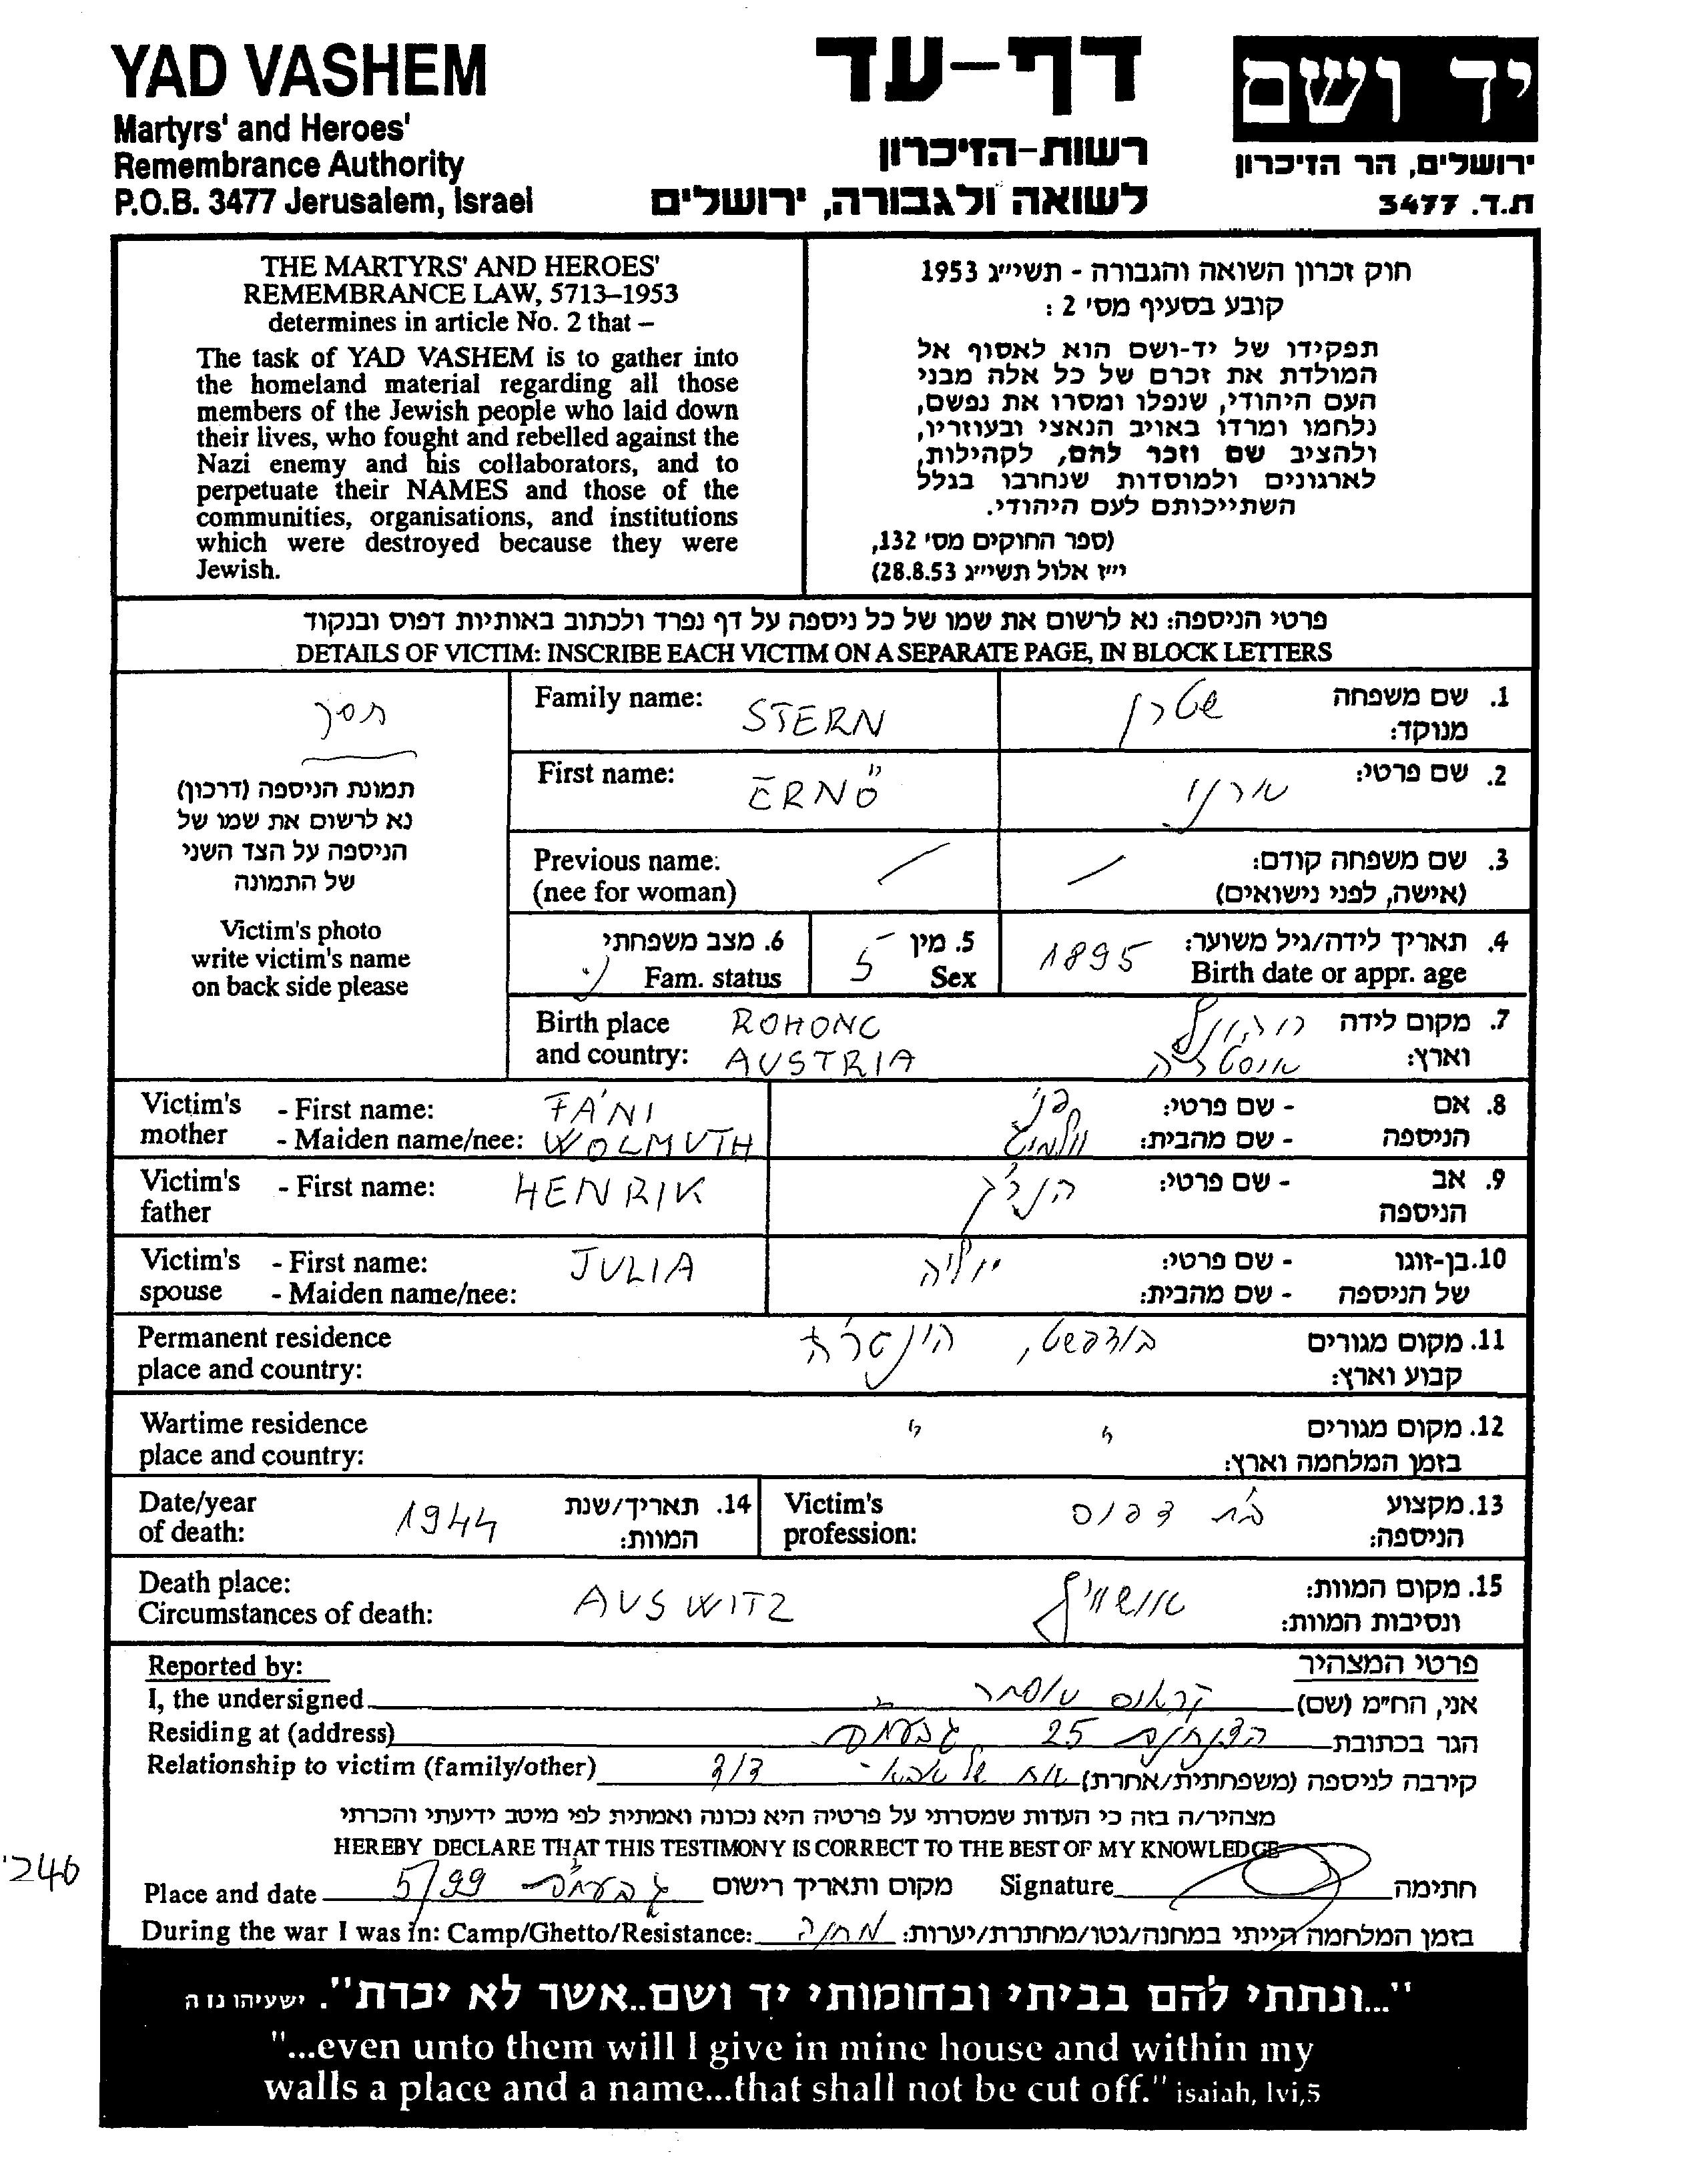 YAD VASHEM
Martyrs' and Heroes'
Remembrance Authority
P.O.B. 3477 Jerusalem, Israel
דף-עד
רשות-הזיכרון
לשואה ולגבורה, ירושלים
יד ושם
ירושלים, הר הזיכרון
ת.ד. 3477
THE MARTYRS' AND HEROES'
REMEMBRANCE LAW, 5713–1953
determines in article No. 2 that –
The task of YAD VASHEM is to gather into
the homeland material regarding all those
members of the Jewish people who laid down
their lives, who fought and rebelled against the
Nazi enemy and his collaborators, and to
perpetuate their NAMES and those of the
communities, organisations, and institutions
which were destroyed because they were
Jewish.
חוק זכרון השואה והגבורה - תשי״ג 1953
קובע בסעיף מס׳ 2 :
תפקידו של יד-ושם הוא לאסוף אל
המולדת את זכרם של כל אלה מבני
העם היהודי, שנפלו ומסרו את נפשם,
נלחמו ומרדו באויב הנאצי ובעוזריו,
ולהציב שם וזכר להם, לקהילות,
לארגונים ולמוסדות שנחרבו בגלל
השתייכותם לעם היהודי.
(ספר החוקים מס׳ 132,
י״ז אלול תשי״ג 28.8.53)
פרטי הניספה: נא לרשום את שמו של כל ניספה על דף נפרד ולכתוב באותיות דפוס ובנקוד
DETAILS OF VICTIM: INSCRIBE EACH VICTIM ON A SEPARATE PAGE, IN BLOCK LETTERS
תמונת הניספה (דרכון)
נא לרשום את שמו של
הניספה על הצד השני
של התמונה
Victim's photo
write victim's name
on back side please
Family name: STERN שטרן 1. שם משפחה
מנוקד:
First name: ERNÖ ארנו 2. שם פרטי:
Previous name: / / 3. שם משפחה קודם:
(nee for woman) (אישה, לפני נישואים)
6. מצב משפחתי נ' 5. מין 5 4. תאריך לידה/גיל משוער: 1895
Fam. status Sex Birth date or appr. age
Birth place ROHONC 7. מקום לידה
and country: AUSTRIA אוסטריה וארץ:
Victim's - First name: FÁNI פני - שם פרטי: 8. אם
mother - Maiden name/nee: WOLMUTH - שם מהבית: הניספה
Victim's - First name: HENRIK הנריק - שם פרטי: 9. אב
father הניספה
Victim's - First name: JULIA יוליה - שם פרטי: 10. בן-זוגו
spouse - Maiden name/nee: - שם מהבית: של הניספה
Permanent residence בודפשט, הונגריה 11. מקום מגורים
place and country: קבוע וארץ:
Wartime residence " " 12. מקום מגורים
place and country: בזמן המלחמה וארץ:
Date/year 1944 14. תאריך/שנת
of death: המוות:
Victim's בית דפוס 13. מקצוע
profession: הניספה:
Death place: AUSWITZ אושוויץ 15. מקום המוות:
Circumstances of death: ונסיבות המוות:
Reported by: פרטי המצהיר
I, the undersigned קראוס אסתר אני, החי״מ (שם)
Residing at (address) 25 גבעתיים הגר בכתובת
Relationship to victim (family/other) דוד אח של אבא קירבה לניספה (משפחתית/אחרת)
מצהיר/ה בזה כי העדות שמסרתי על פרטיה היא נכונה ואמתית לפי מיטב ידיעתי והכרתי
HEREBY DECLARE THAT THIS TESTIMONY IS CORRECT TO THE BEST OF MY KNOWLEDGE
'246
Place and date 5/99 גבעתיים מקום ותאריך רישום Signature חתימה
During the war I was in: Camp/Ghetto/Resistance: מחנה בזמן המלחמה הייתי במחנה/גטו/מחתרת/יערות:
"...ונתתי להם בביתי ובחומותי יד ושם..אשר לא יכרת". ישעיהו נו ה
"...even unto them will I give in mine house and within my
walls a place and a name...that shall not be cut off." isaiah, lvi,5